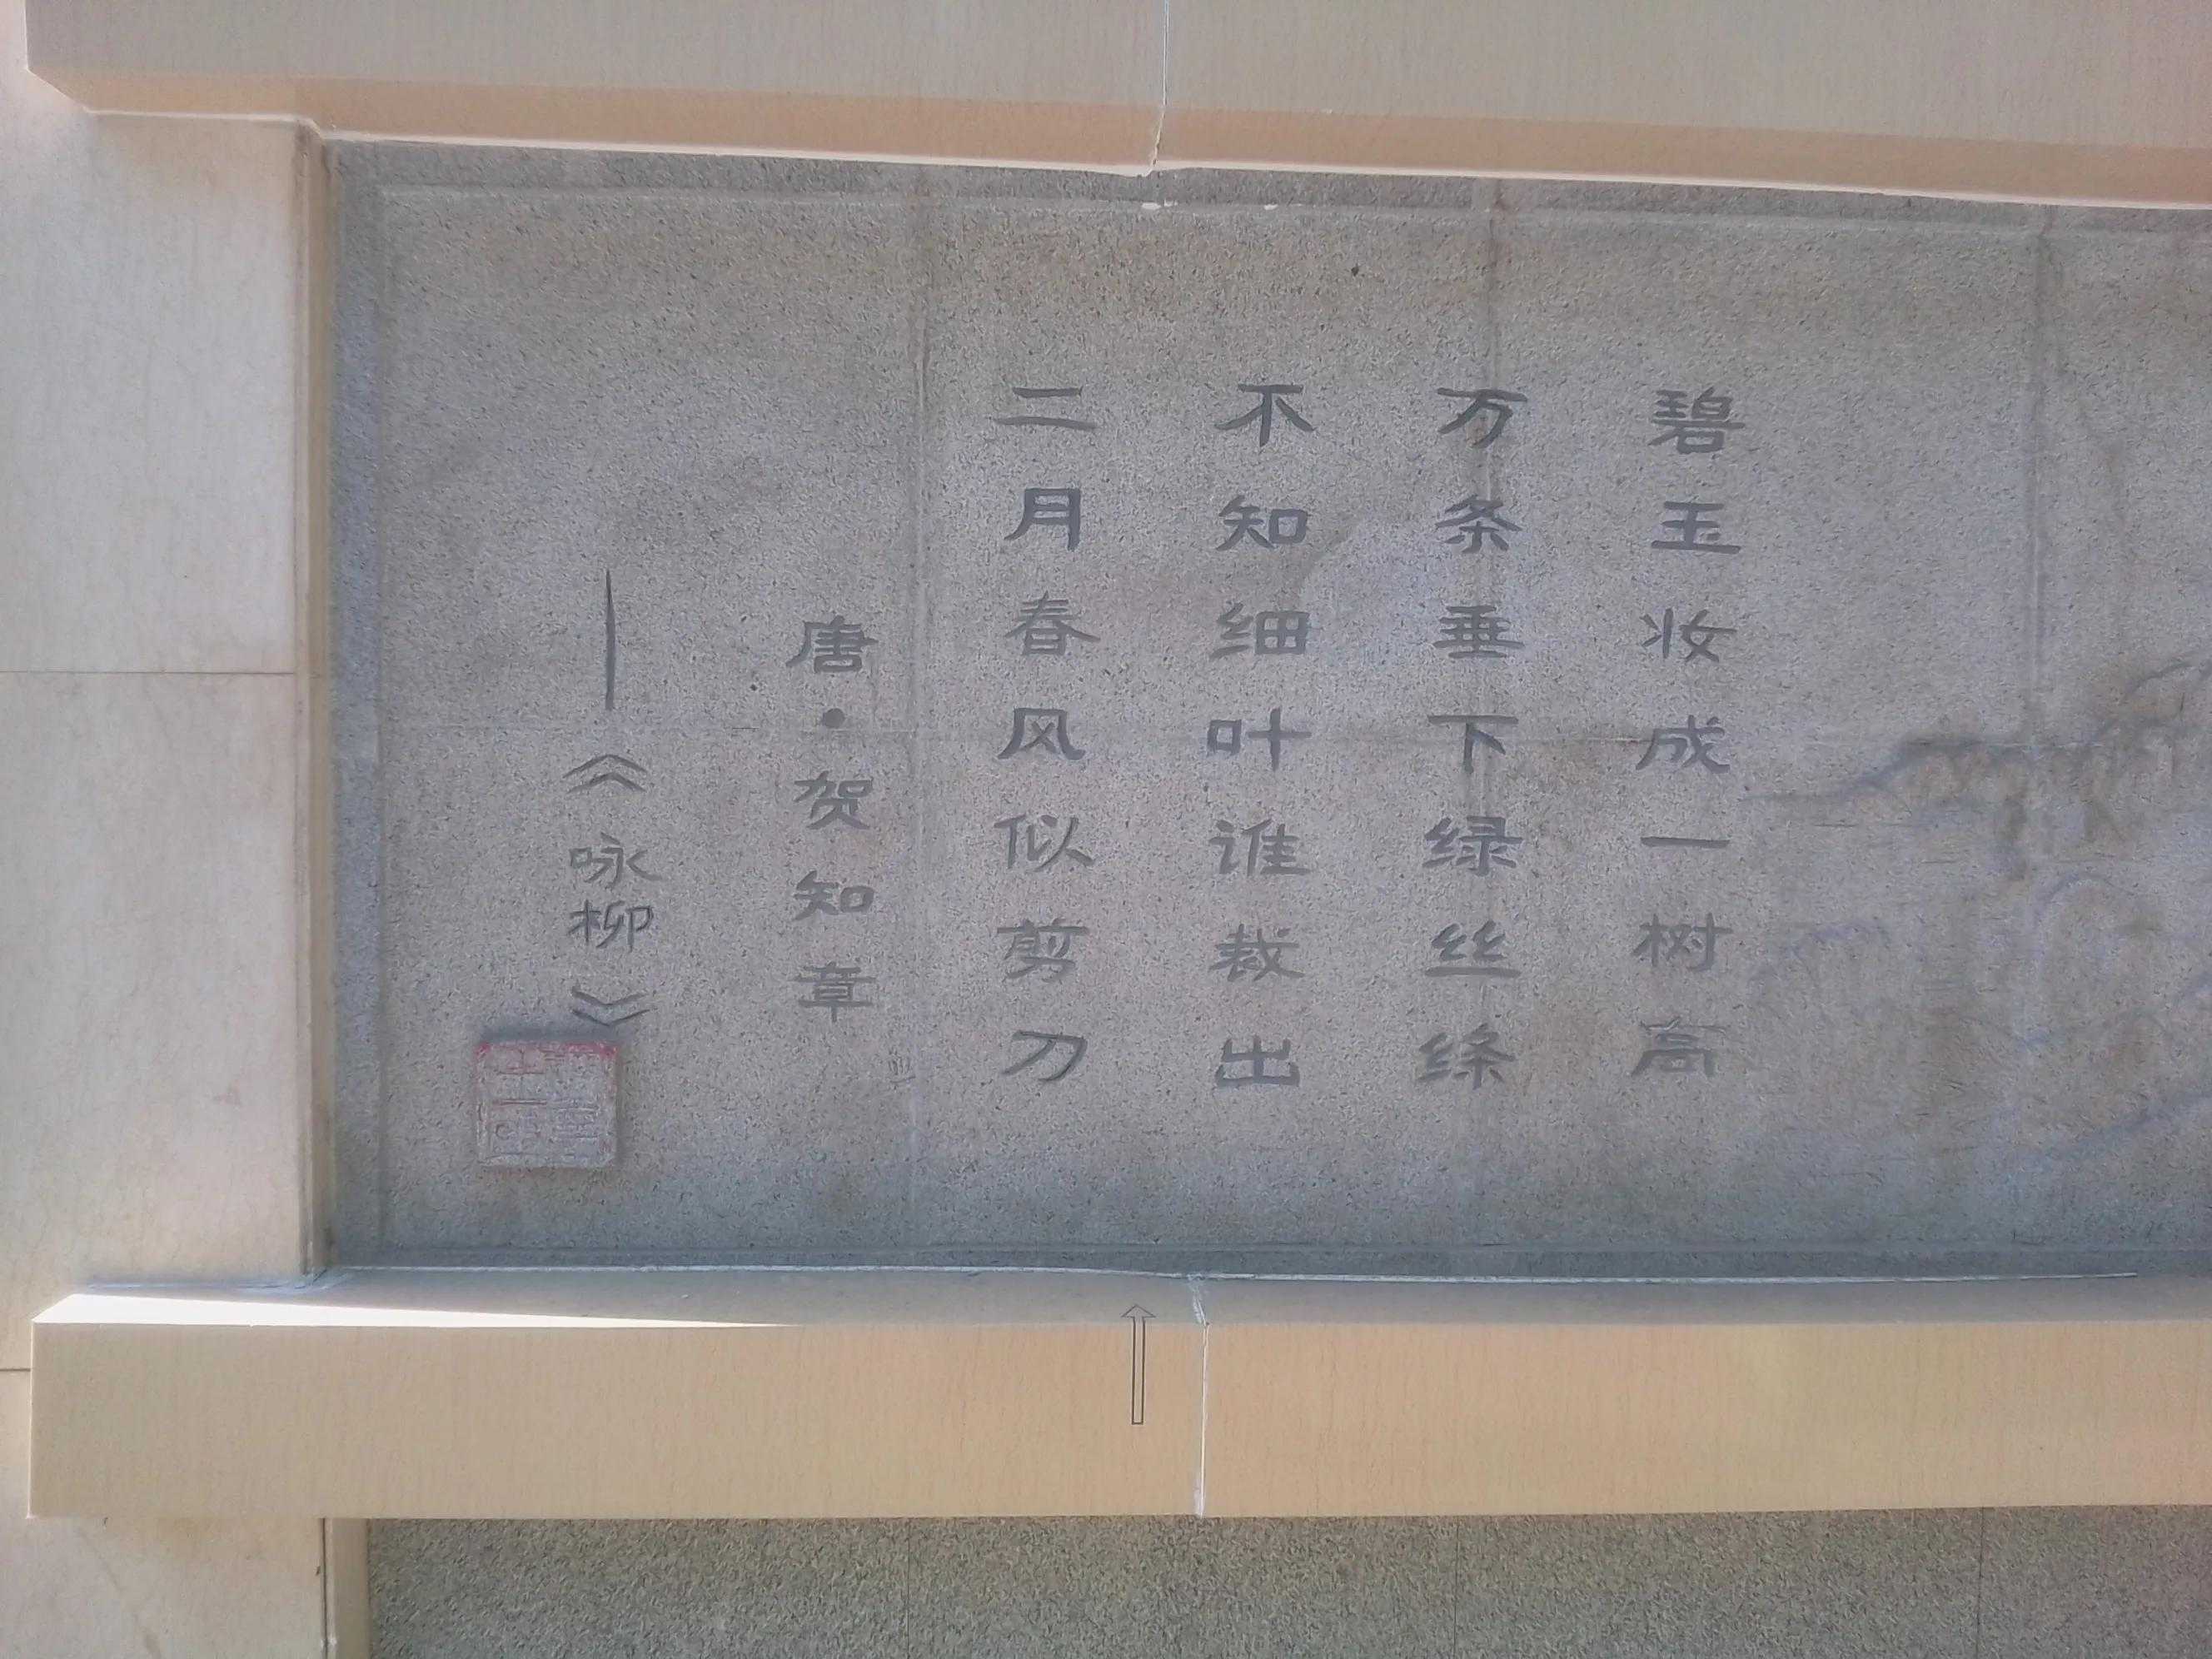 碧玉妆成一树高
万条垂下绿丝绦
不知细叶谁裁出
二月春风似剪刀
唐·贺知章
——《咏柳》